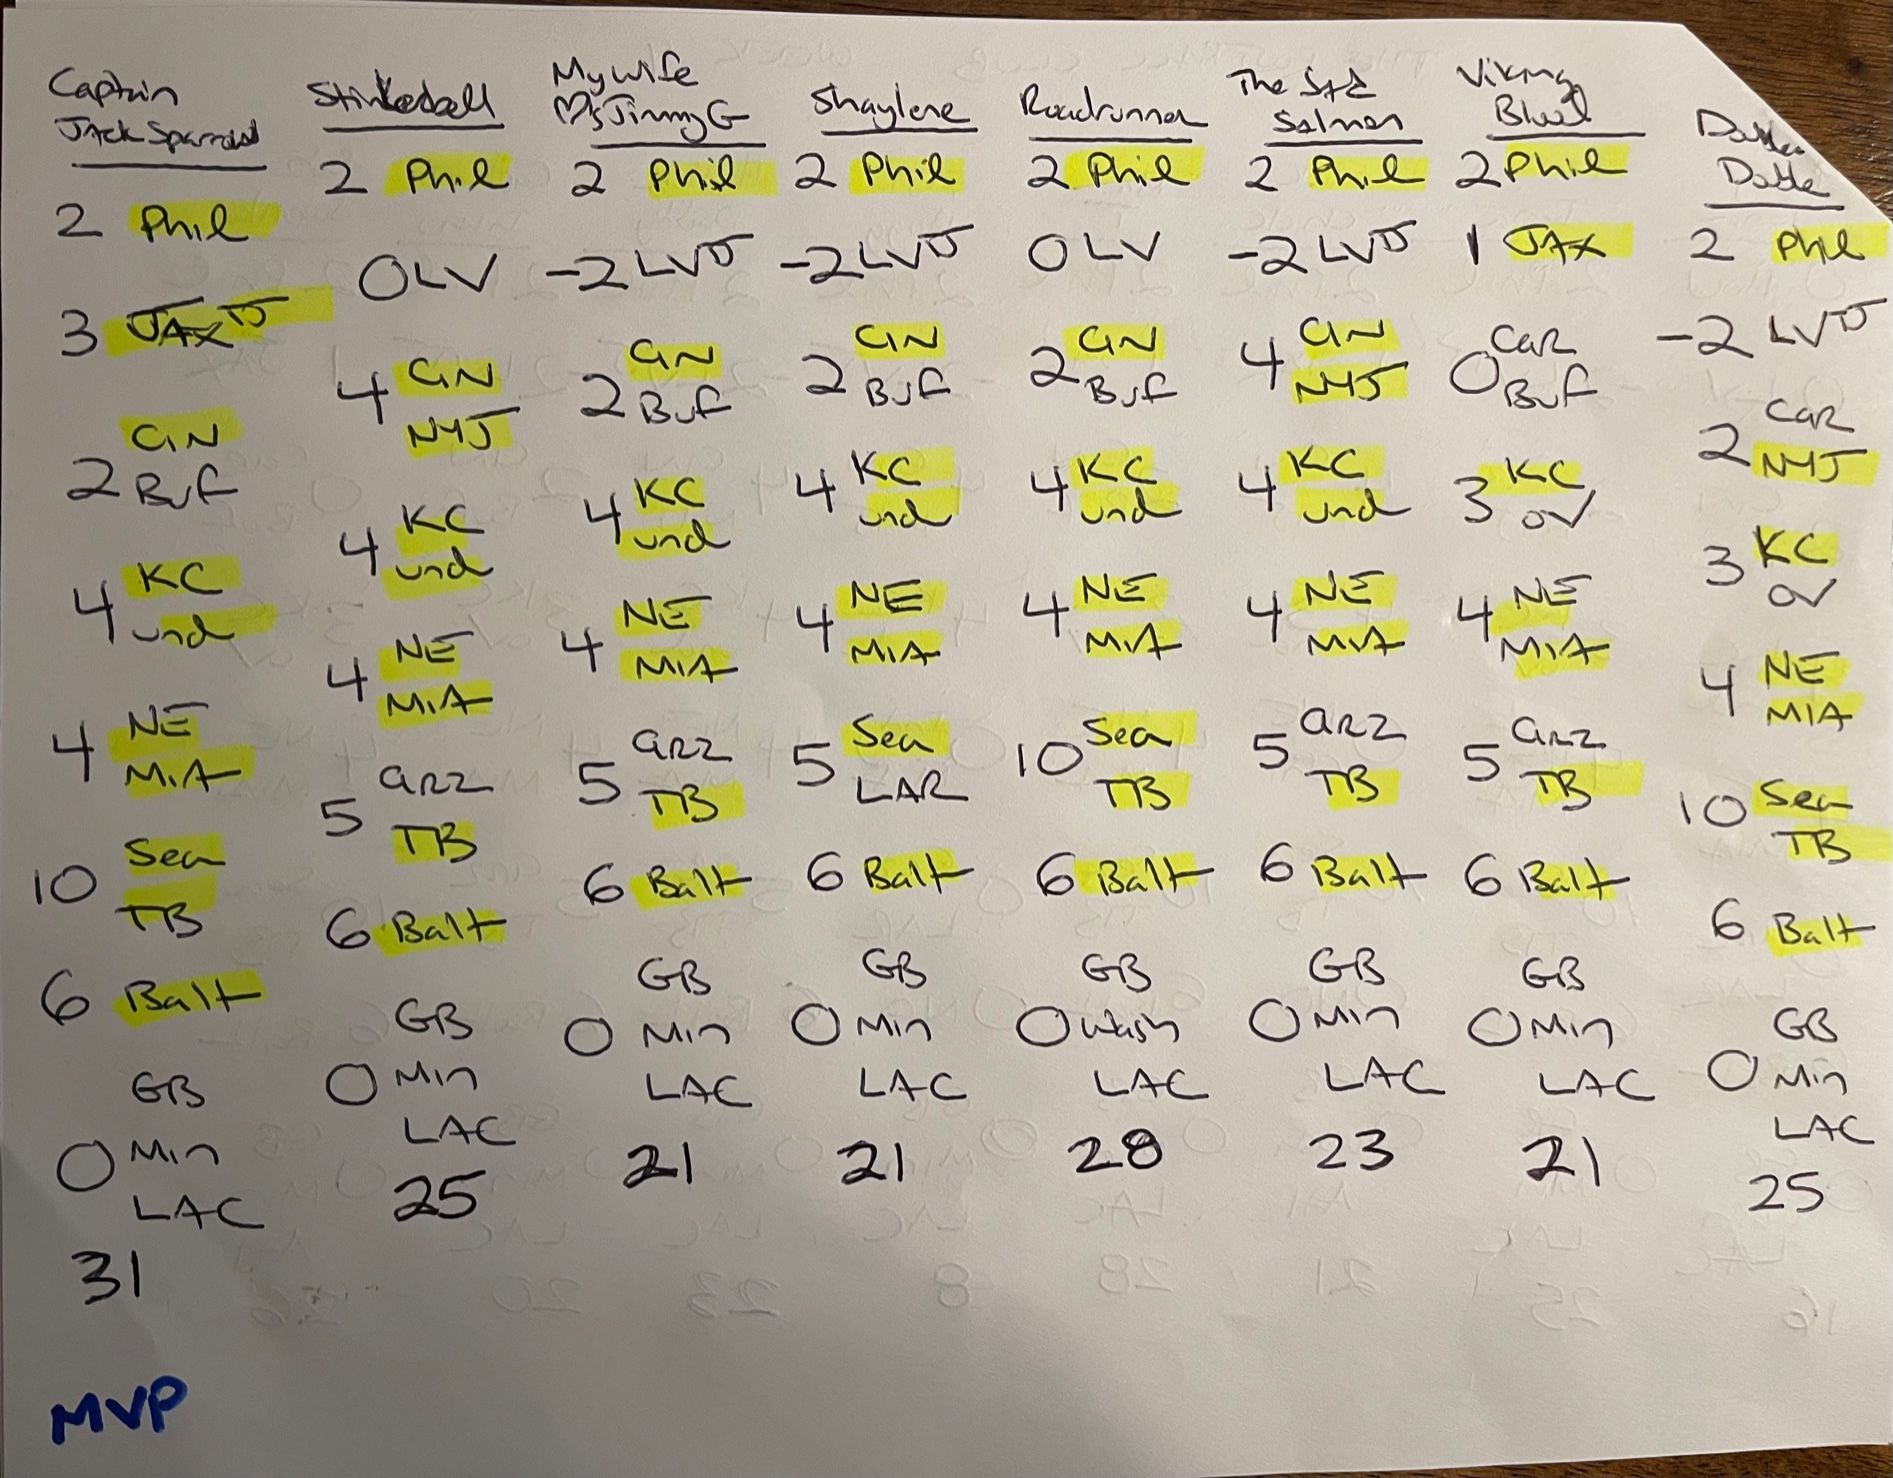 Captain
Jack Sparrow
2 Phil
3 JAX J
CIN
2 Buf
KC
4 und
4 NE
MIA
10 Sea
TB
6 Balt
GB
0 Min
LAC
31
MVP
Stinkerbell
2 Phil
0 LV
4 CIN
NYJ
4 KC
und
4 NE
MIA
5 ARZ
TB
6 Balt
GB
0 Min
LAC
25
My wife
Jimmy G
2 Phil
-2 LV J
CIN
2 Buf
4 KC
und
4 NE
MIA
5 ARZ
TB
6 Balt
GB
0 Min
LAC
21
Shaylene
2 Phil
-2 LV J
CIN
2 Buf
4 KC
und
4 NE
MIA
5 Sea
LAR
6 Balt
GB
0 Min
LAC
21
Roadrunner
2 Phil
0 LV
2 CIN
Buf
4 KC
und
4 NE
MIA
10 Sea
TB
6 Balt
GB
0 Wash
LAC
28
The Sad
Salmon
2 Phil
-2 LV J
4 CIN
NYJ
4 KC
und
4 NE
MIA
5 ARZ
TB
6 Balt
GB
0 Min
LAC
23
Viking
2 Phil
1 JAX
0 Car
Buf
3 KC
OV
4 NE
MIA
5 ARZ
TB
6 Balt
GB
0 Min
LAC
21
2 Phil
-2 LV J
Car
2 NYJ
3 KC
OV
4 NE
MIA
10 Sea
TB
6 Balt
GB
0 Min
LAC
25